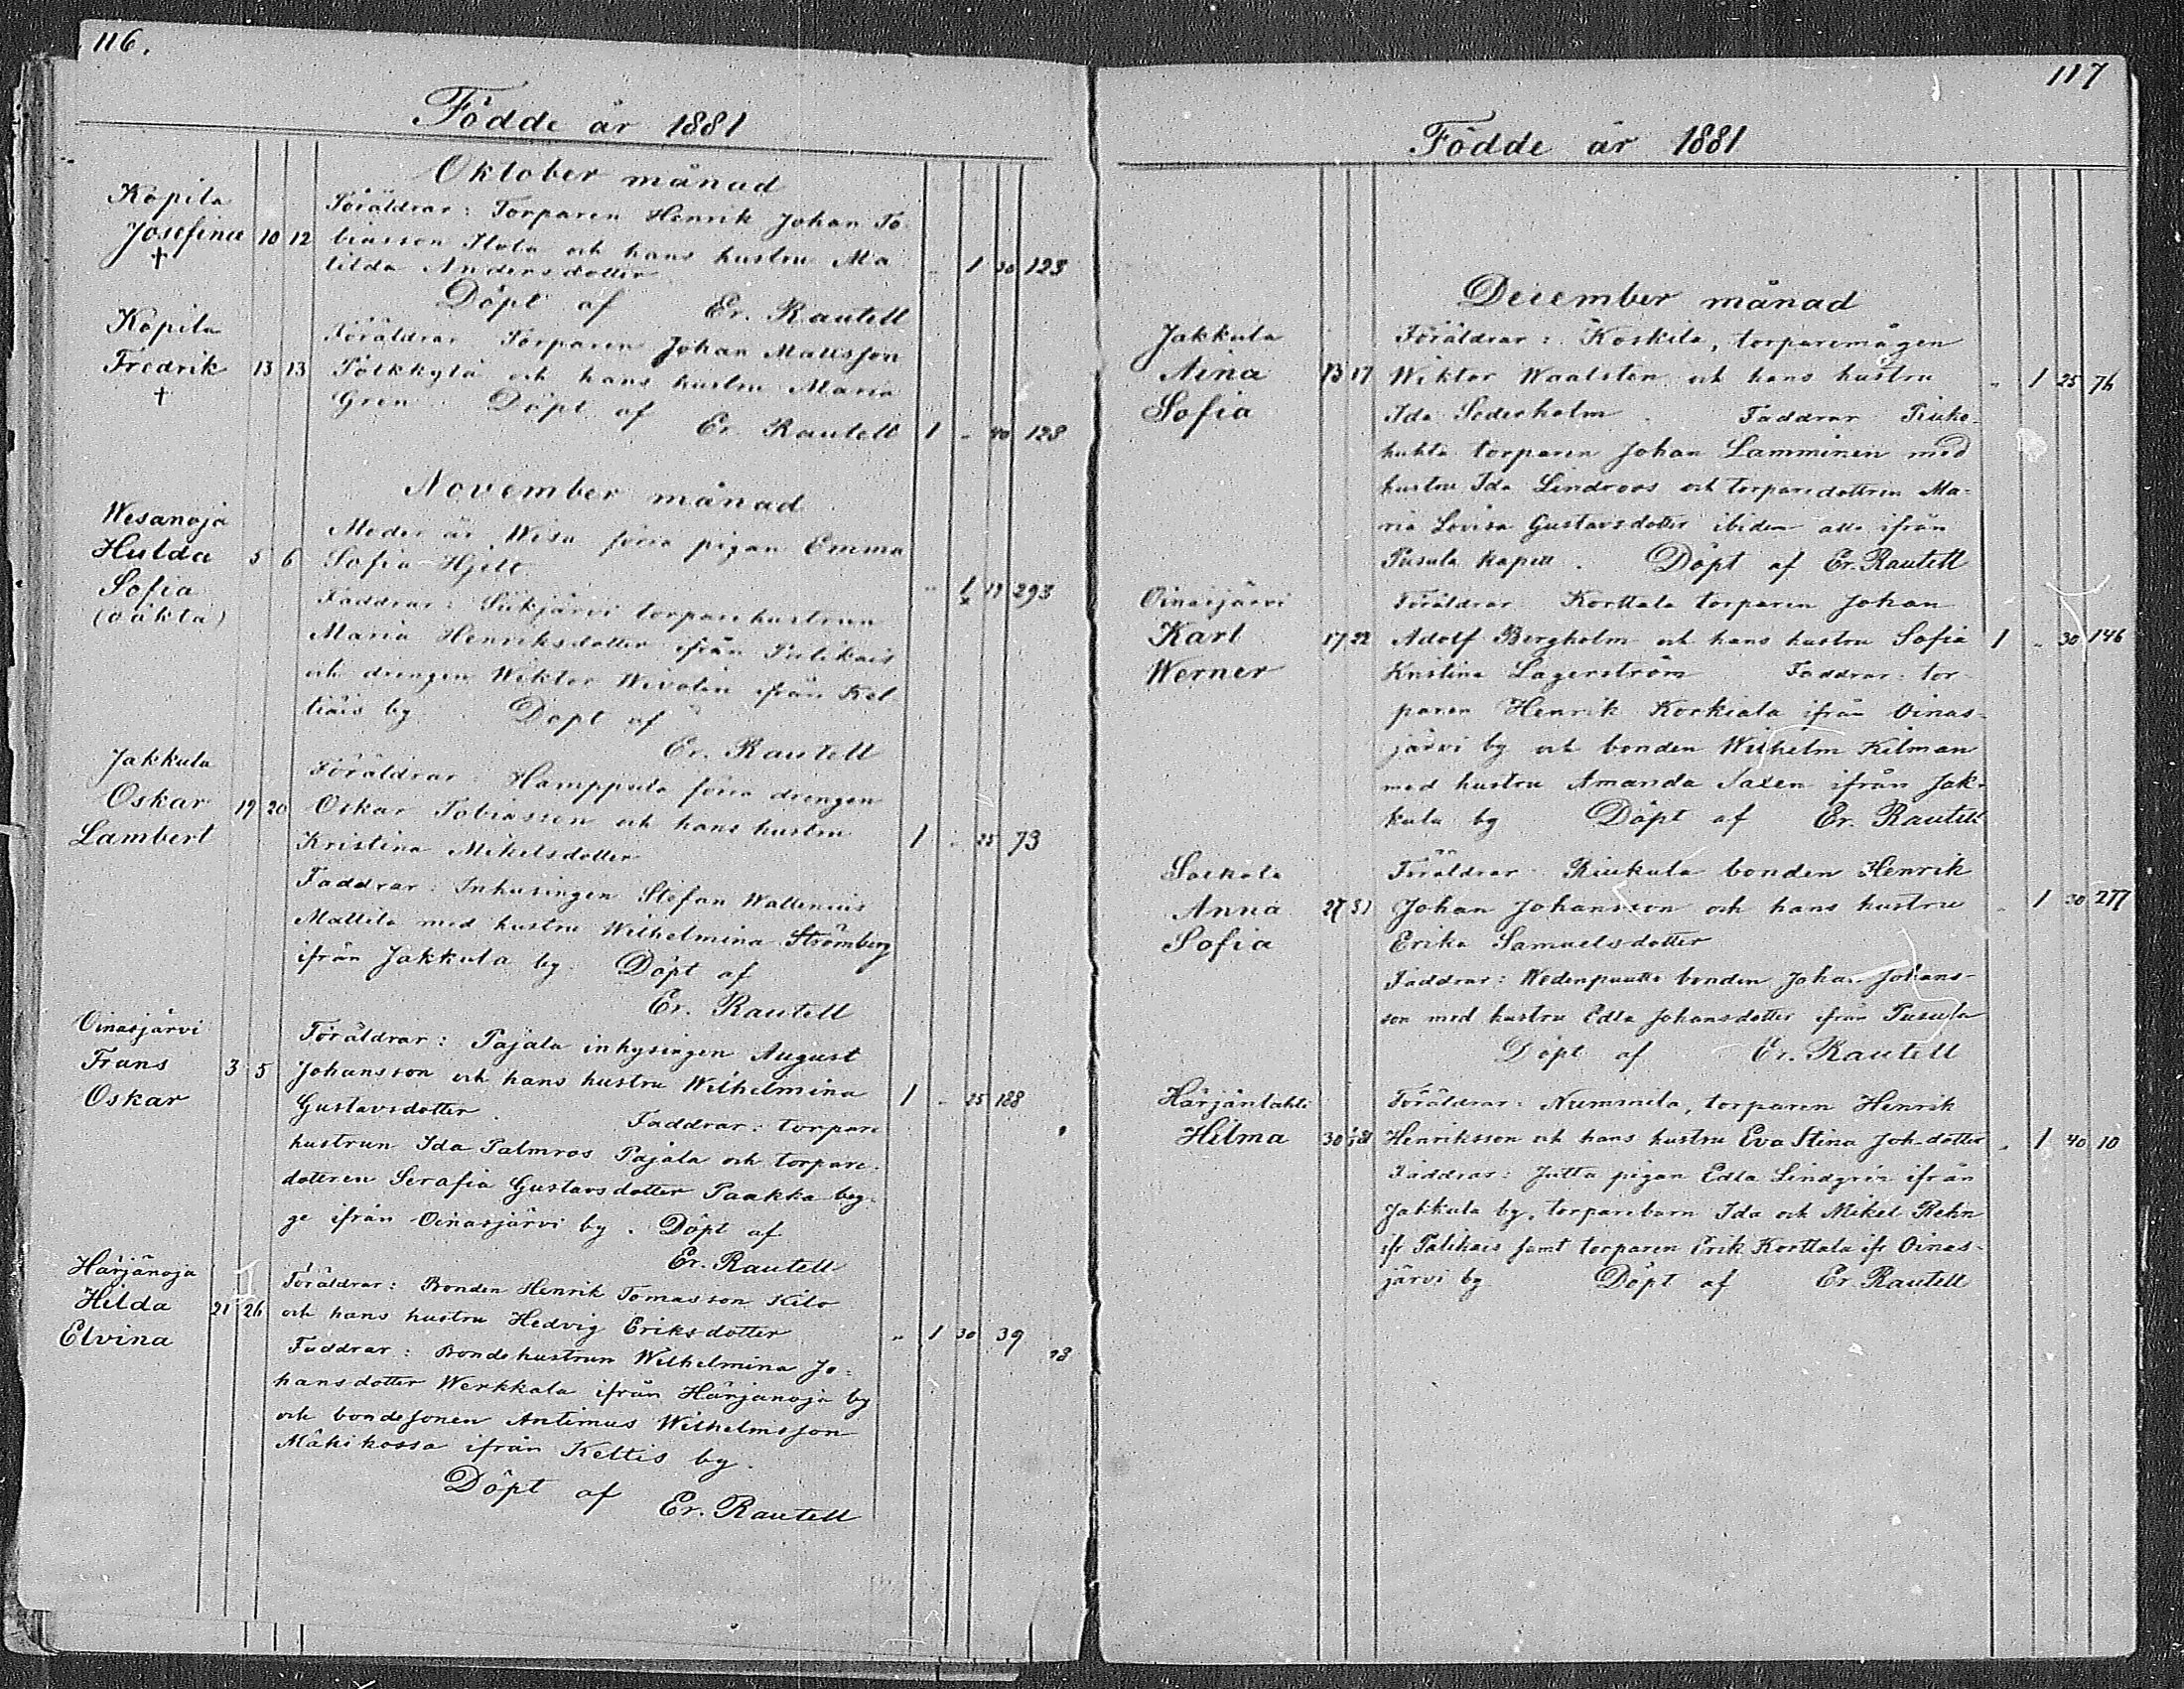 116.
Födde år 1881
Oktober månad
Köpilä
Josefina 10 12
†
Föräldrar: Torparen Henrik Johan To
biasson Ilola och hans hustru Ma
tilda Andersdotter " 1 30 123
Döpt af Er. Rautell
Köpilä
Fredrik 13 13
†
Föräldrar Torparen Johan Mattsson
Pölkkylä och hans hustru Maria
Gren Döpt af
Er. Rautell 1 " 40 128
November månad
Wesanoja
Hulda 5 6
Sofia
(oäkta)
Moder är Wisu förra pigan Emma
Sofia Hjelt " 1 19 293
Faddrar: Siikjärvi torparehustrun
Maria Henriksdotter ifrån
och drengen Wiktor ifrån Kel
tiäis by Döpt af
Er. Rautell
Jakkula
Oskar 19 20
Lambert
Föräldrar Hamppula förra drengen
Oskar Tobiasson och hans hustru
Kristina Mikelsdotter 1 " 25 73
Faddrar: Inhysingen Stefan Wallenius
Mattila med hustru Wilhelmina Strömberg
ifrån Jakkula by Döpt af
Er. Rautell
Oinasjärvi
Frans 3 5
Oskar
Föräldrar: Pajala inhysingen August
Johansson och hans hustru Wilhelmina
Gustavsdotter. Faddrar: torpare 1 " 25 188
hustrun Ida Palmros Pajala och torpare-
dottren Serafia Gustavsdotter Paakka beg-
ge ifrån Oinasjärvi by. Döpt af
Er. Rautell
Härjänoja
Hilda 21 26
Elvina
Föräldrar: Bonden Henrik Tomasson Kilo
och hans hustru Hedvig Eriksdotter " 1 30 39
Faddrar: Bondehustrun Wilhelmina Jo-
hansdotter Werkkala ifrån Härjänoja by
och bondesonen Antimus Wilhelmsson
Mäkikossa ifrån Keltis by.
Döpt af Er. Rautell
117
Födde år 1881
December månad
Jakkula
Nina 13 17
Sofia
Föräldrar: Koskila, torparemågen
Wiktor Waalsten och hans hustru " 1 25 76
Ida Söderholm. Faddrar
huhta torparen Johan Lamminen med
hustru Ida Lindroos och torparedottren Ma-
ria Lovisa Gustavsdotter ibidem alla ifrån
Pusula kapell. Döpt af Er. Rautell
Oinasjärvi
Karl 17 22
Werner
Föräldrar Korttala torparen Johan
Adolf Bergholm och hans hustru Sofia 1 " 30 146
Kristina Lagerström Faddrar: tor-
paren Henrik Korkiala ifrån Oinas-
järvi by och bonden Wilhelm Kilman
med hustru Amanda Saxen ifrån Jak-
kula by Döpt af Er. Rautell
Saikola
Anna 27 31
Sofia
Föräldrar Riukula bonden Henrik
Johan Johansson och hans hustru " 1 30 277
Erika Samuelsdotter
Faddrar: bonden Johan Johans-
son med hustru Edla Johansdotter ifrån Pusula
Döpt af Er. Rautell
Härjänlahti
Hilma 30
Föräldrar: Nummela, torparen Henrik
Henriksson och hans hustru Eva Stina Joh.dotter " 1 40 10
Faddrar: Jutta pigan Edla Lindgrén ifrån
Jakkula by, torparebarn Ida och Mikel Rehn
ifr Palikais samt torparen Erik Korttala ifr Oinas-
järvi by Döpt af Er. Rautell